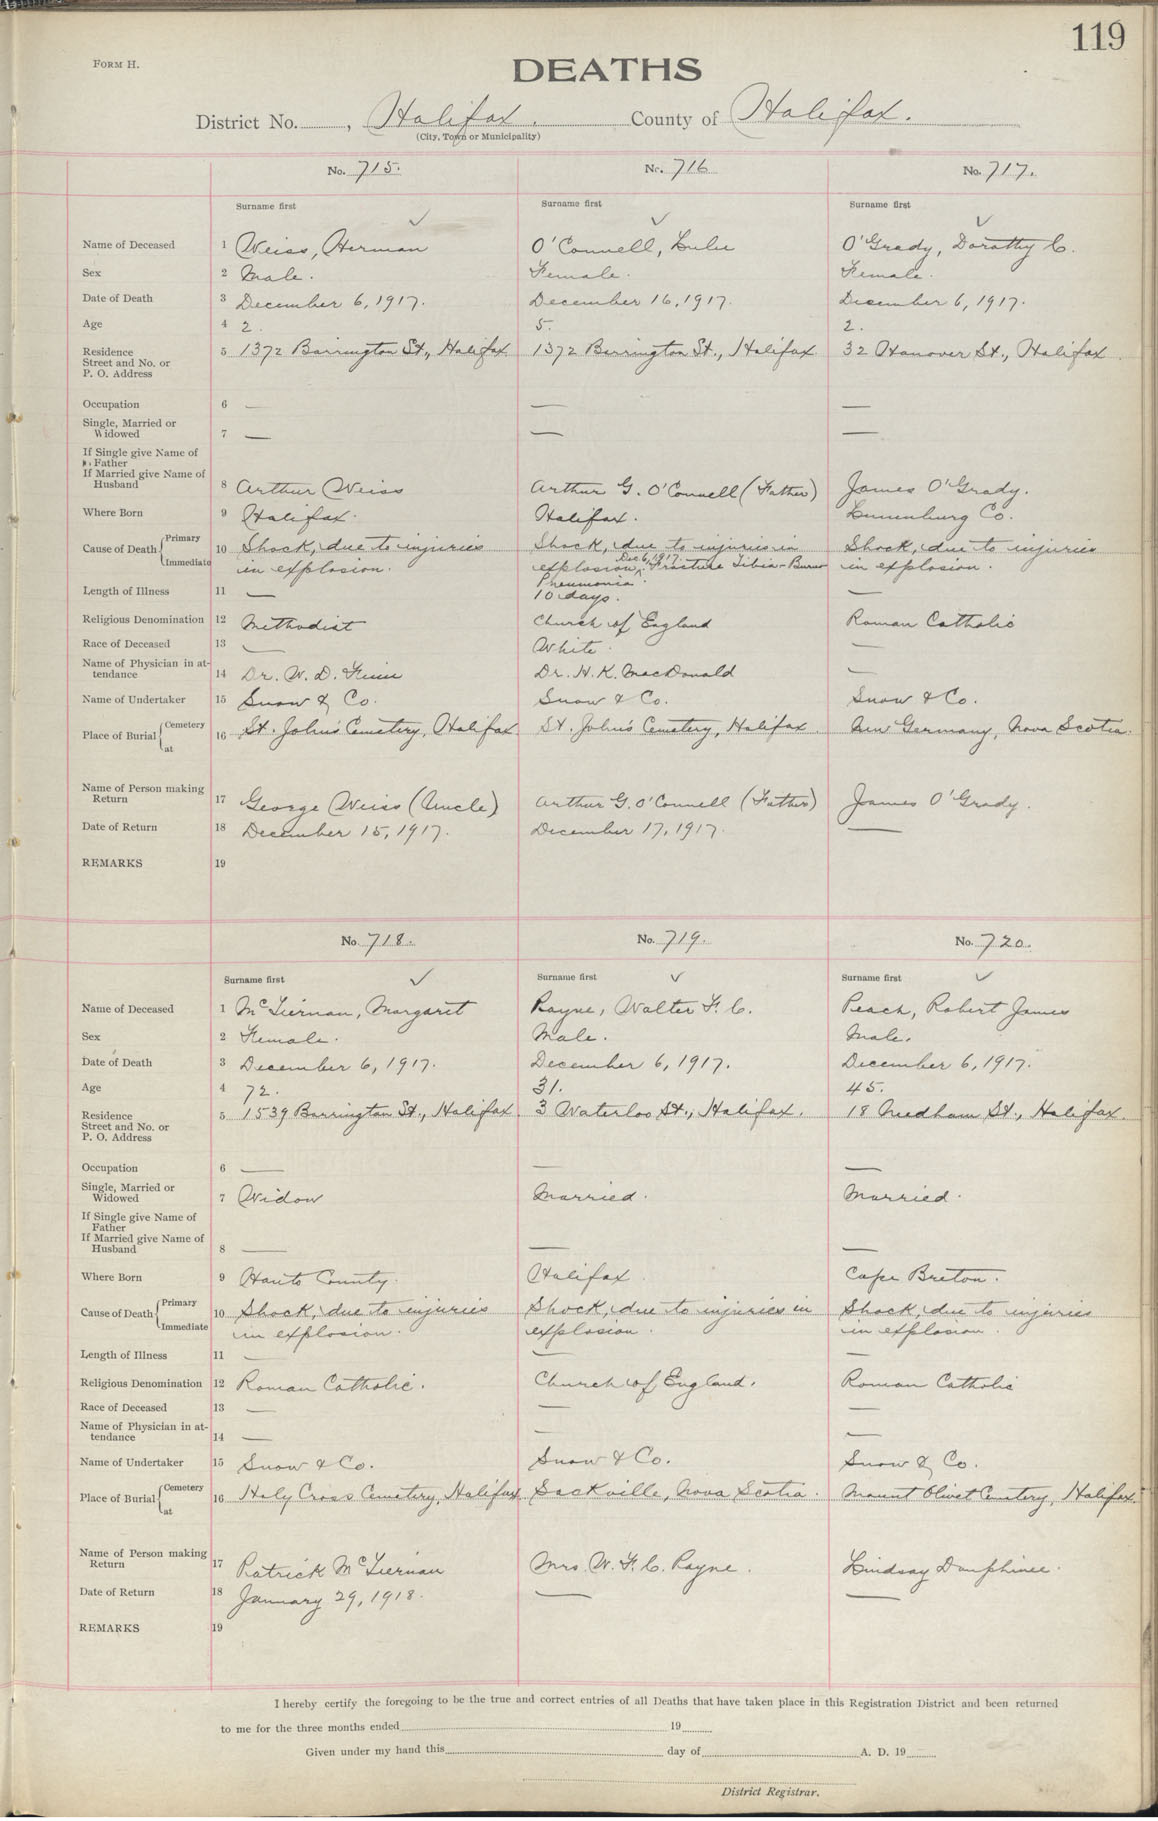 119
FORM H.
DEATHS
District No. , Halifax. County of Halifax.
(City, Town or Municipality)
No. 715. No. 716 No. 717.
Surname first Surname first Surname first
Name of Deceased 1 Weiss, Herman O'Connell, Lulu O'Grady, Dorothy C.
Sex 2 Male. Female. Female.
Date of Death 3 December 6, 1917. December 16, 1917. December 6, 1917.
Age 4 2. 5. 2.
Residence Street and No. or P. O. Address 5 1372 Barrington St., Halifax 1372 Barrington St., Halifax 32 Hanover St., Halifax.
Occupation 6 — — —
Single, Married or Widowed 7 — — —
If Single give Name of Father
If Married give Name of Husband 8 Arthur Weiss Arthur G. O'Connell (Father) James O'Grady.
Where Born 9 Halifax. Halifax. Lunenburg Co.
Cause of Death { Primary Immediate 10 Shock, due to injuries in explosion. Shock, due to injuries in explosion, Dec 6, 1917. Fracture Tibia - Burns Pneumonia. Shock, due to injuries in explosion.
Length of Illness 11 — 10 days. —
Religious Denomination 12 Methodist Church of England Roman Catholic
Race of Deceased 13 — White. —
Name of Physician in attendance 14 Dr. W. D. Finn Dr. H. K. MacDonald —
Name of Undertaker 15 Snow & Co. Snow & Co. Snow & Co.
Place of Burial { Cemetery at 16 St. John's Cemetery, Halifax St. John's Cemetery, Halifax. New Germany, Nova Scotia.
Name of Person making Return 17 George Weiss (Uncle) Arthur G. O'Connell (Father) James O'Grady.
Date of Return 18 December 15, 1917. December 17, 1917. —
REMARKS 19
No. 718. No. 719. No. 720.
Surname first Surname first Surname first
Name of Deceased 1 McTiernan, Margaret Rayne, Walter F. C. Peach, Robert James
Sex 2 Female. Male. Male.
Date of Death 3 December 6, 1917. December 6, 1917. December 6, 1917.
Age 4 72. 31. 45.
Residence Street and No. or P. O. Address 5 1539 Barrington St., Halifax. 3 Waterloo St., Halifax. 18 Needham St., Halifax.
Occupation 6 — — —
Single, Married or Widowed 7 Widow Married. Married.
If Single give Name of Father
If Married give Name of Husband 8 — — —
Where Born 9 Hants County. Halifax. Cape Breton.
Cause of Death { Primary Immediate 10 Shock, due to injuries in explosion. Shock, due to injuries in explosion. Shock, due to injuries in explosion.
Length of Illness 11 — — —
Religious Denomination 12 Roman Catholic. Church of England. Roman Catholic
Race of Deceased 13 — — —
Name of Physician in attendance 14 — — —
Name of Undertaker 15 Snow & Co. Snow & Co. Snow & Co.
Place of Burial { Cemetery at 16 Holy Cross Cemetery, Halifax Sackville, Nova Scotia. Mount Olivet Cemetery, Halifax.
Name of Person making Return 17 Patrick McTiernan Mrs. W. F. C. Rayne. Lindsay Dauphinee.
Date of Return 18 January 29, 1918. — —
REMARKS 19
I hereby certify the foregoing to be the true and correct entries of all Deaths that have taken place in this Registration District and been returned
to me for the three months ended 19
Given under my hand this day of A. D. 19
District Registrar.